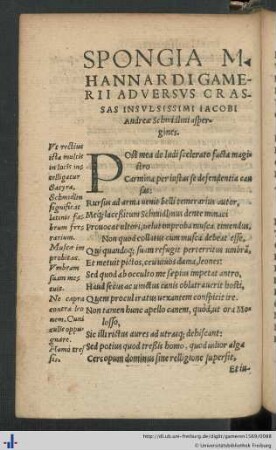 SPONGIA M.
HANNARDI GAME-
RII ADVERSVS CRAS-
SAS INSVLSISSIMI IACOBI
Andreæ Schmidlini asper-
gines.
Vt rectius
ista multis
in locis in-
telligatur
Satyra,
Schmidlin
significat
latinis fa-
brum fer-
rarium.
Mulier im-
proba
Vmbram
suam me-
tuit.
Ne capra
contra leo-
nem.
Cani
asello ppu-
gnare.
Homo tres-
sis.
POst mea de ludi scelerato facta magi-
stro
Carmina per iustas se defendentia cau-
sas:
Rursus ad arma uenio belli temerarius autor,
Meq; lacessitum Schmidlinus dente minaci
Prouocat ultori, uelut improba musca, timendus,
Non quod collatus cum musca debeat esse,
Qui quandoq; suam refugit perterritus umbrã,
Et metuit pastos, ceu uiuos dama, leones:
Sed quod ab occulto me sæpius impetat antro,
Haud secus ac uinctus canis oblatrauerit hosti,
Quem procul iratus uenantem conspicit ire.
Non tamen hunc apello canem, quod ut ora Mo-
losso,
Sic illi rictus aures ad utrasq; dehiscant:
Sed potius quod tressis homo, quod uilior alga
Cercopum dominus sine religione supersit,
Et in-
http://dl.ub.uni-freiburg.de/diglit/gamerien1569/0048
© Universitätsbibliothek Freiburg